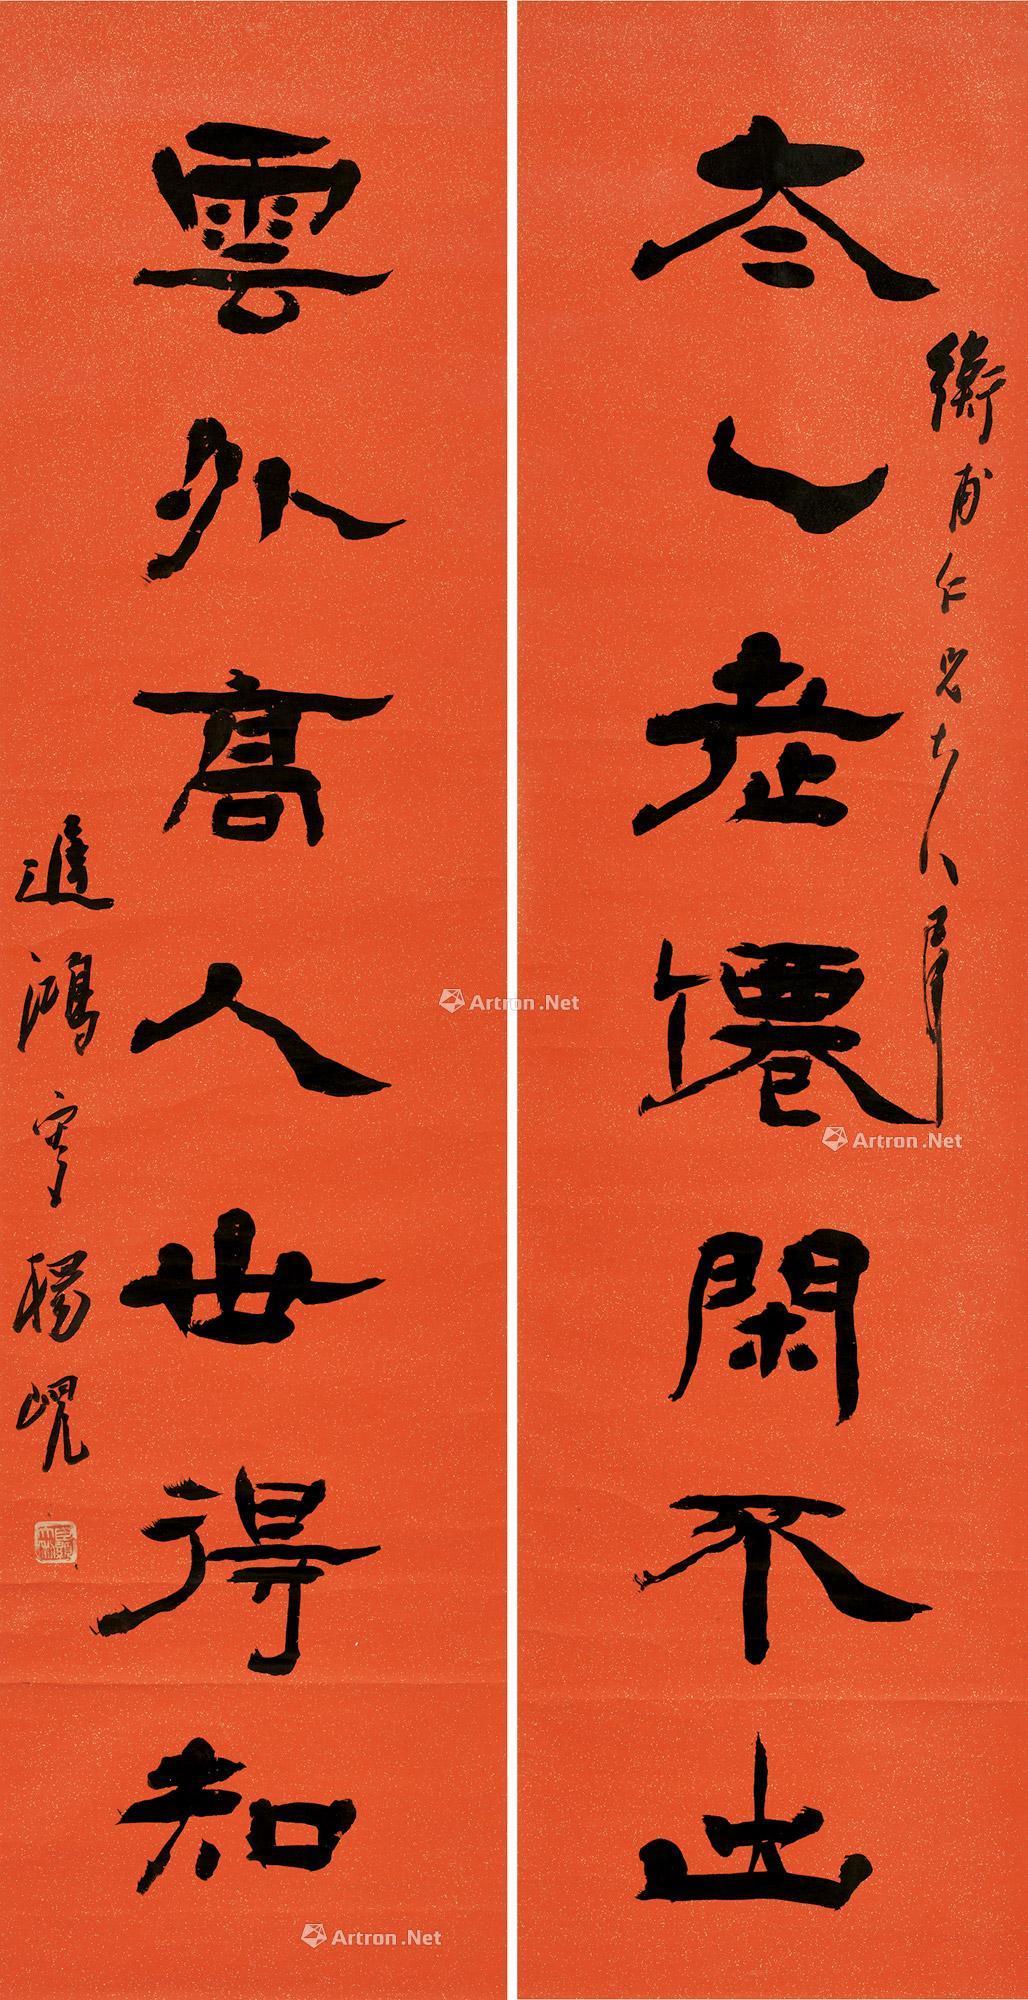 夳乙老僊閑不出
衡甫仁兄大人屬
雲外高人世得知
遲鴻 楊峴
Artron.Net
Artron.Net
Artron.Net